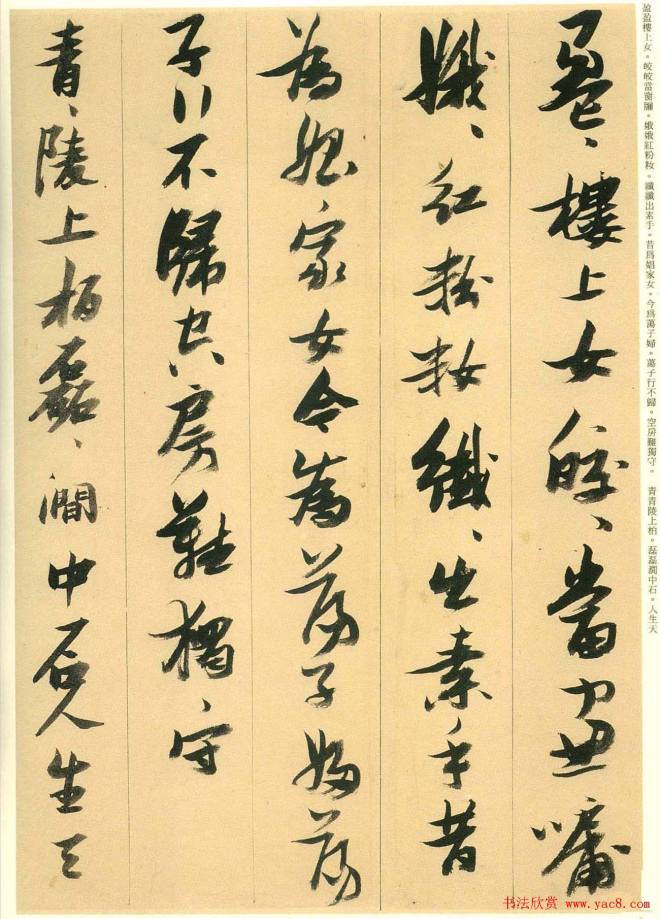 盈盈樓上女。皎皎當窗牖。娥娥紅粉妝。纖纖出素手。昔爲娼家女。今爲蕩子婦。蕩子行不歸。空房難獨守。 青青陵上柏。磊磊澗中石。人生天
盈〻樓上女皎〻當窗牖
娥〻紅粉妝纖〻出素手昔
為娼家女今為蕩子婦蕩
子行不歸空房難獨守
青〻陵上柏磊〻澗中石人生天
书法欣赏 www.yac8.com